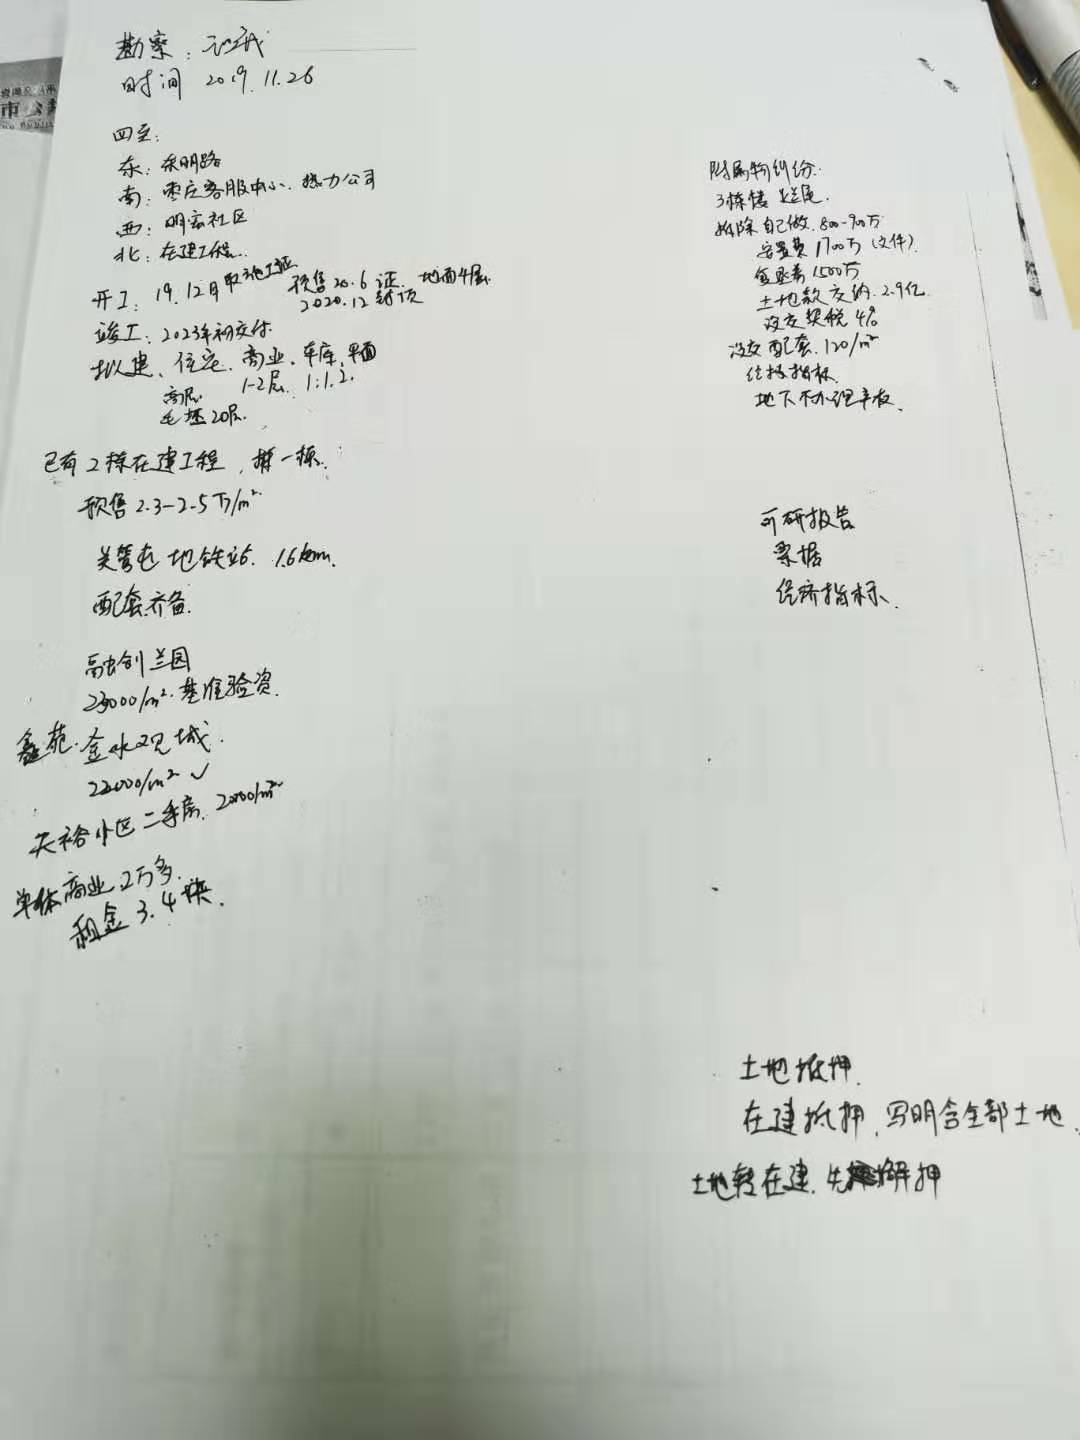 勘察：
时间 2019.11.26
四至：
东：
南：枣庄客服中心、热力公司
西：明宏社区
北：在建工程
开工：19.12月取施工证 预售20.6证 地面4层
2020.12封顶
竣工：2023年初交付
拟建、住宅、商业、车库、
高层 1-2层 1:1.2.
毛坯20层
已有2栋在建工程，一栋
预售2.3-2.5万/m²
关管屯地铁站 1.6km
配套齐备
融创兰园
23000/m² 基准验资
鑫苑·金水观城
22000/m² ✓
天裕小区二手房 /m²
单体商业2万多
租金3.4块
附属物纠纷
3栋楼
拆除自己做 800-900万
安置费1700万（文件）
1500万
土地款交纳2.9亿
没交契税4%
没交配套 120/m²
指标
地下不办理产权
可研报告
票据
经济指标
土地抵押
在建抵押，写明含全部土地
土地转在建，先解押